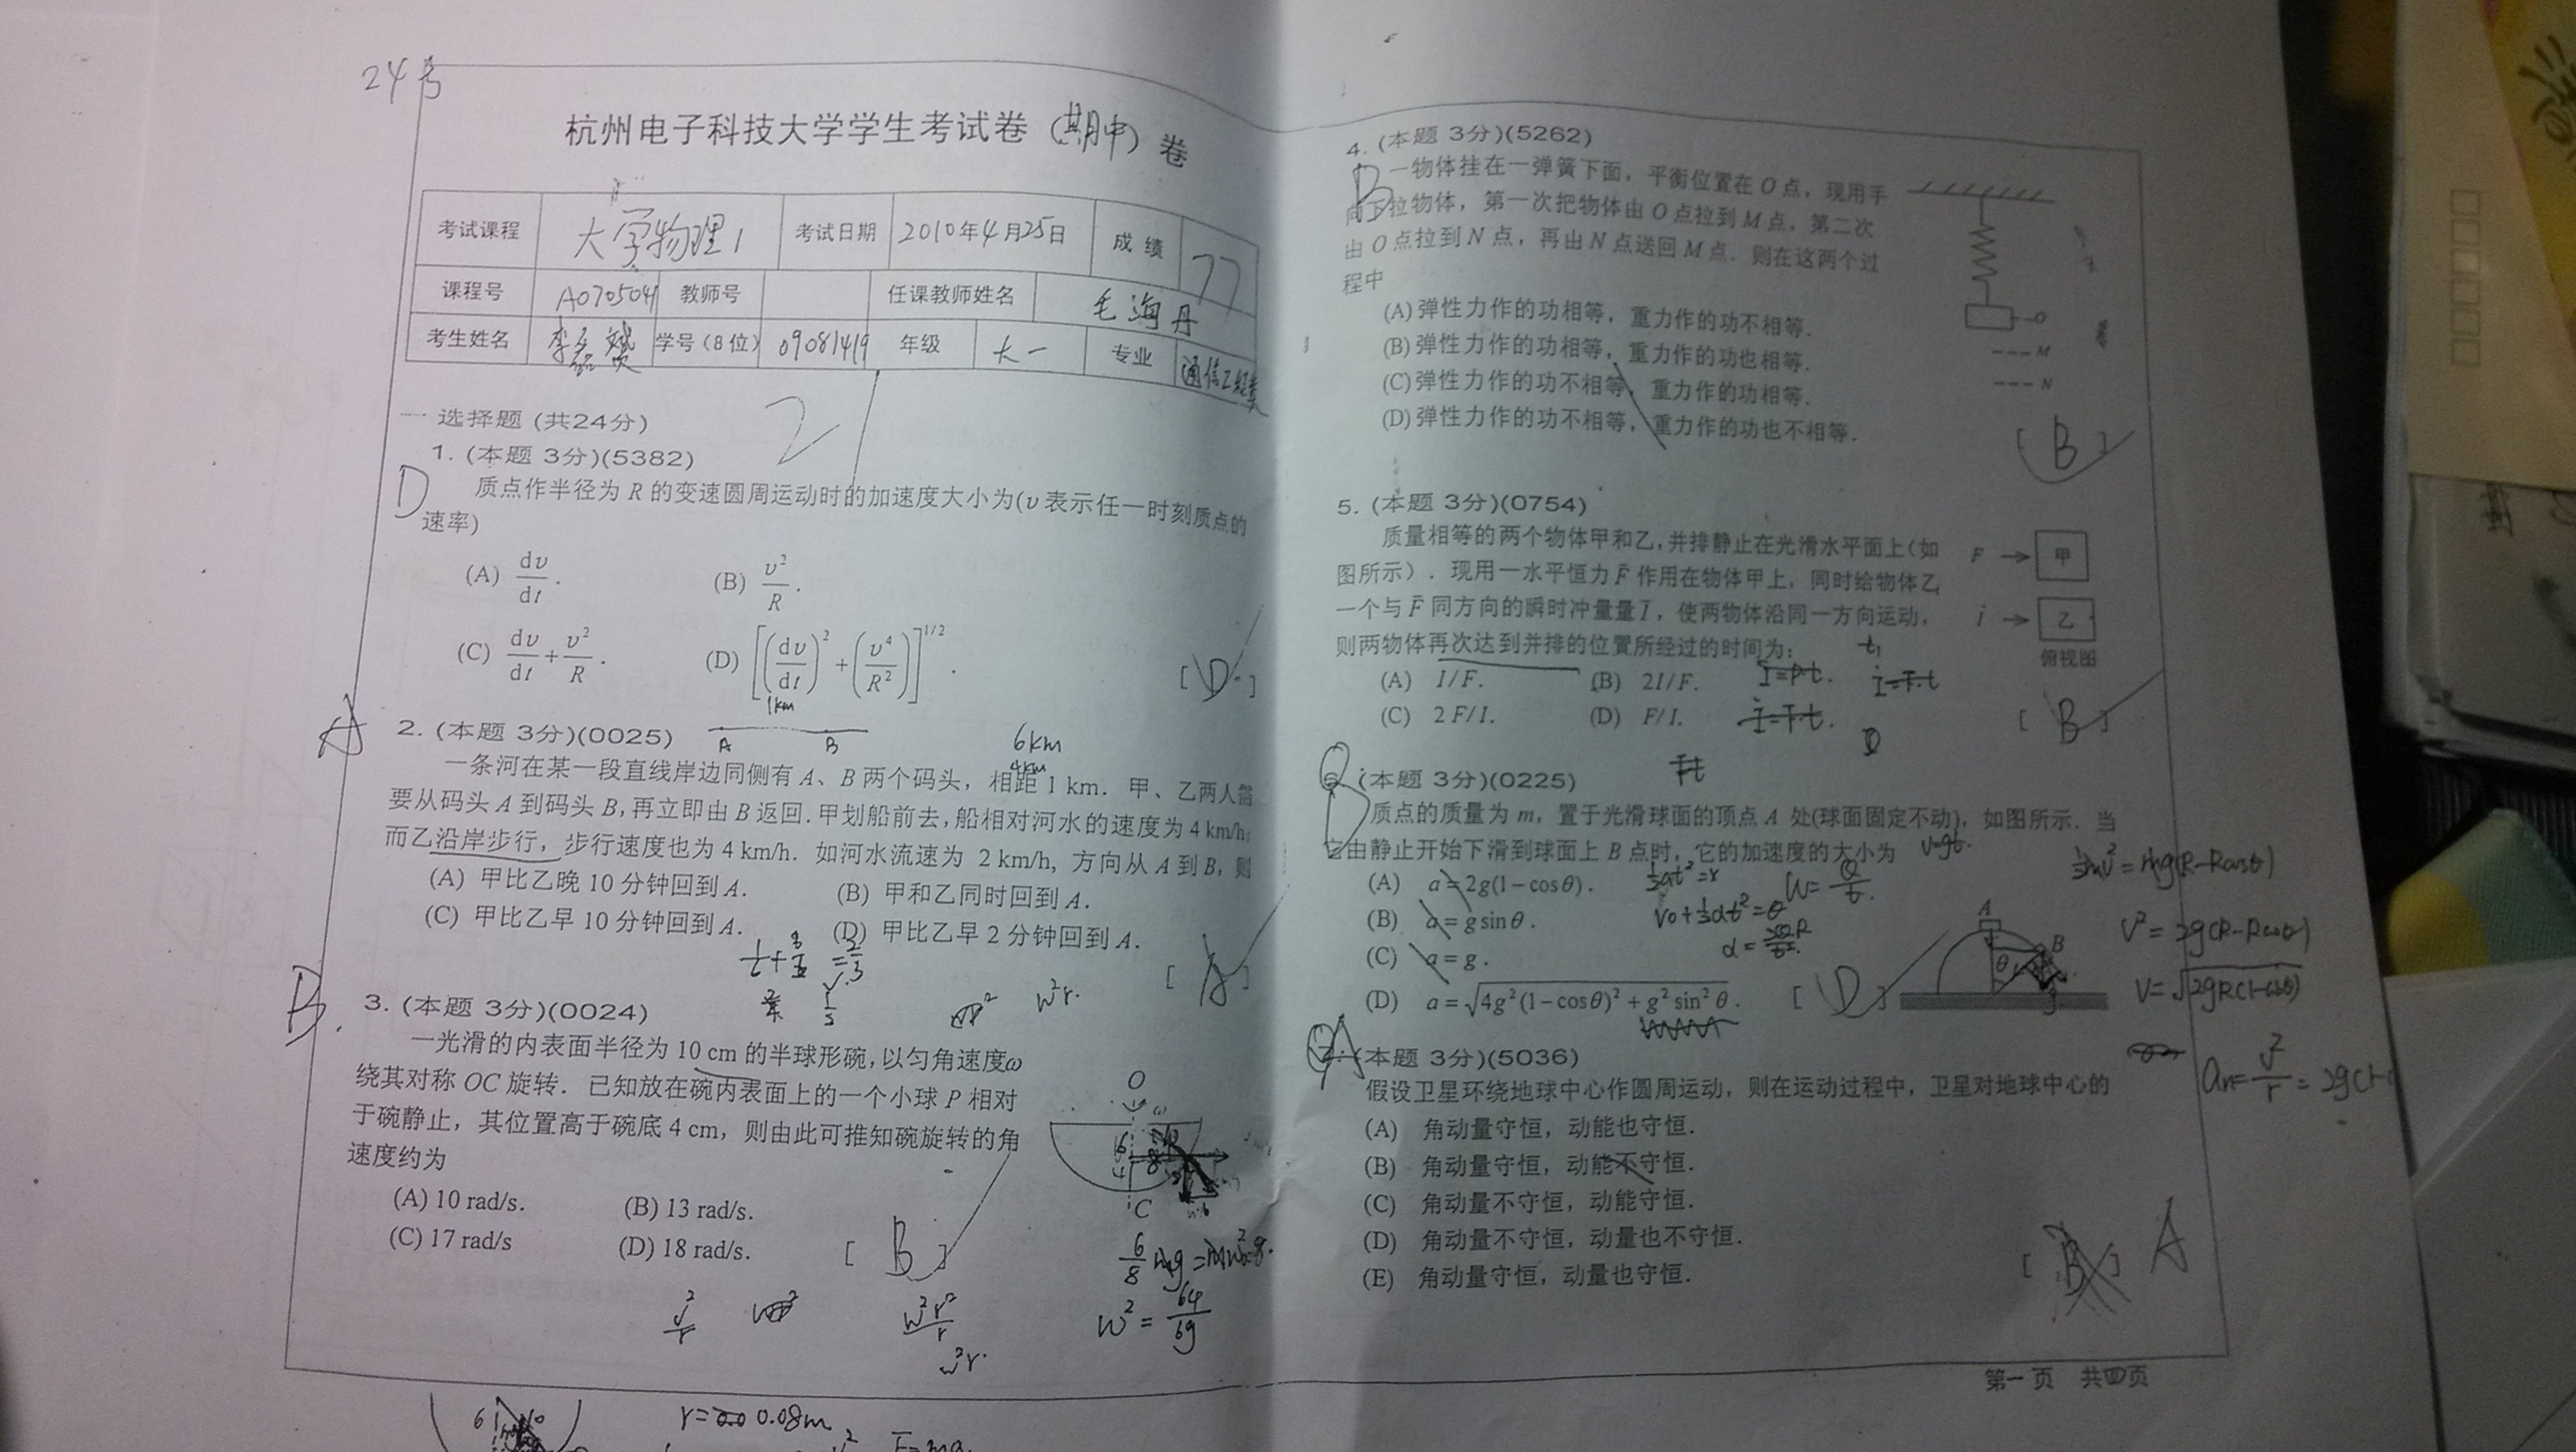 24号
杭州电子科技大学学生考试卷 (期中) 卷
考试课程 大学物理1 考试日期 2010年4月25日 成绩 77
课程号 A0705041 教师号 任课教师姓名 毛海丹
考生姓名 李磊斌 学号(8位) 09081419 年级 大一 专业 通信工程
一 选择题 (共24分)
21
1. (本题 3分)(5382)
D
质点作半径为 R 的变速圆周运动时的加速度大小为(v 表示任一时刻质点的
速率)
(A) dv/dt . (B) v²/R .
(C) dv/dt + v²/R . (D) [(dv/dt)² + (v⁴/R²)]^1/2 .
[ D ]
1km
A B
A
2. (本题 3分)(0025)
6km
4km
一条河在某一段直线岸边同侧有 A、B 两个码头，相距 1 km．甲、乙两人需
要从码头 A 到码头 B,再立即由 B 返回.甲划船前去,船相对河水的速度为 4 km/h;
而乙沿岸步行，步行速度也为 4 km/h．如河水流速为 2 km/h, 方向从 A 到 B，则
(A) 甲比乙晚 10 分钟回到 A. (B) 甲和乙同时回到 A.
(C) 甲比乙早 10 分钟回到 A. (D) 甲比乙早 2 分钟回到 A.
[ A ]
ω²r.
B.
3. (本题 3分)(0024)
一光滑的内表面半径为 10 cm 的半球形碗,以匀角速度ω
绕其对称 OC 旋转．已知放在碗内表面上的一个小球 P 相对
于碗静止，其位置高于碗底 4 cm，则由此可推知碗旋转的角
速度约为
O
ω
6
4
8
C
(A) 10 rad/s. (B) 13 rad/s.
(C) 17 rad/s (D) 18 rad/s.
[ B ]
6/8 mg = mω²8.
ω² = 64/69
v²/r
ω²r²/r
ω²r.
6 10
r= 0.08m
F=ma
4. (本题 3分)(5262)
B
一物体挂在一弹簧下面，平衡位置在 O 点，现用手
向下拉物体，第一次把物体由 O 点拉到 M 点，第二次
由 O 点拉到 N 点，再由 N 点送回 M 点．则在这两个过
程中
(A) 弹性力作的功相等，重力作的功不相等．
(B) 弹性力作的功相等，重力作的功也相等．
(C) 弹性力作的功不相等，重力作的功相等．
(D) 弹性力作的功不相等，重力作的功也不相等．
O
M
N
[ B ]
5. (本题 3分)(0754)
质量相等的两个物体甲和乙,并排静止在光滑水平面上(如
图所示)．现用一水平恒力 F 作用在物体甲上，同时给物体乙
一个与 F 同方向的瞬时冲量量 I，使两物体沿同一方向运动，
则两物体再次达到并排的位置所经过的时间为:
F → 甲
I → 乙
俯视图
(A) I/F. (B) 2I/F.
(C) 2 F/I. (D) F/I.
[ B ]
I=F·t.
Ft
6. (本题 3分)(0225)
D
质点的质量为 m，置于光滑球面的顶点 A 处(球面固定不动)，如图所示．当
它由静止开始下滑到球面上 B 点时，它的加速度的大小为
(A) a = 2g(1−cosθ)．
(B) a = g sinθ．
(C) a = g．
(D) a = √(4g²(1−cosθ)² + g² sin²θ)．
[ D ]
v=gt.
½at²=x
W=θ/t.
v0+½at²=θ
½mv²=mg(R-Rcosθ)
v²=2g(R-Rcosθ)
v=√2gR(1-cosθ)
an=v²/r=2g(1-
A
B
θ
7. (本题 3分)(5036)
A
假设卫星环绕地球中心作圆周运动，则在运动过程中，卫星对地球中心的
(A) 角动量守恒，动能也守恒．
(B) 角动量守恒，动能不守恒．
(C) 角动量不守恒，动能守恒．
(D) 角动量不守恒，动量也不守恒．
(E) 角动量守恒，动量也守恒．
[ B ] A
第一页 共四页